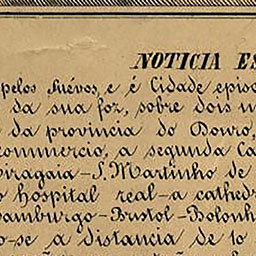 NOTICIA ES
pelos Suévos, e é Cidade episc
da sua foz, sobre dois m
da provincia do Douro,
commercio, a segunda Ca
Miragaia - S. Martinho de
o hospital real - a cathed
Hamburgo - Bristol - Bolonh
o-se a distancia de 10